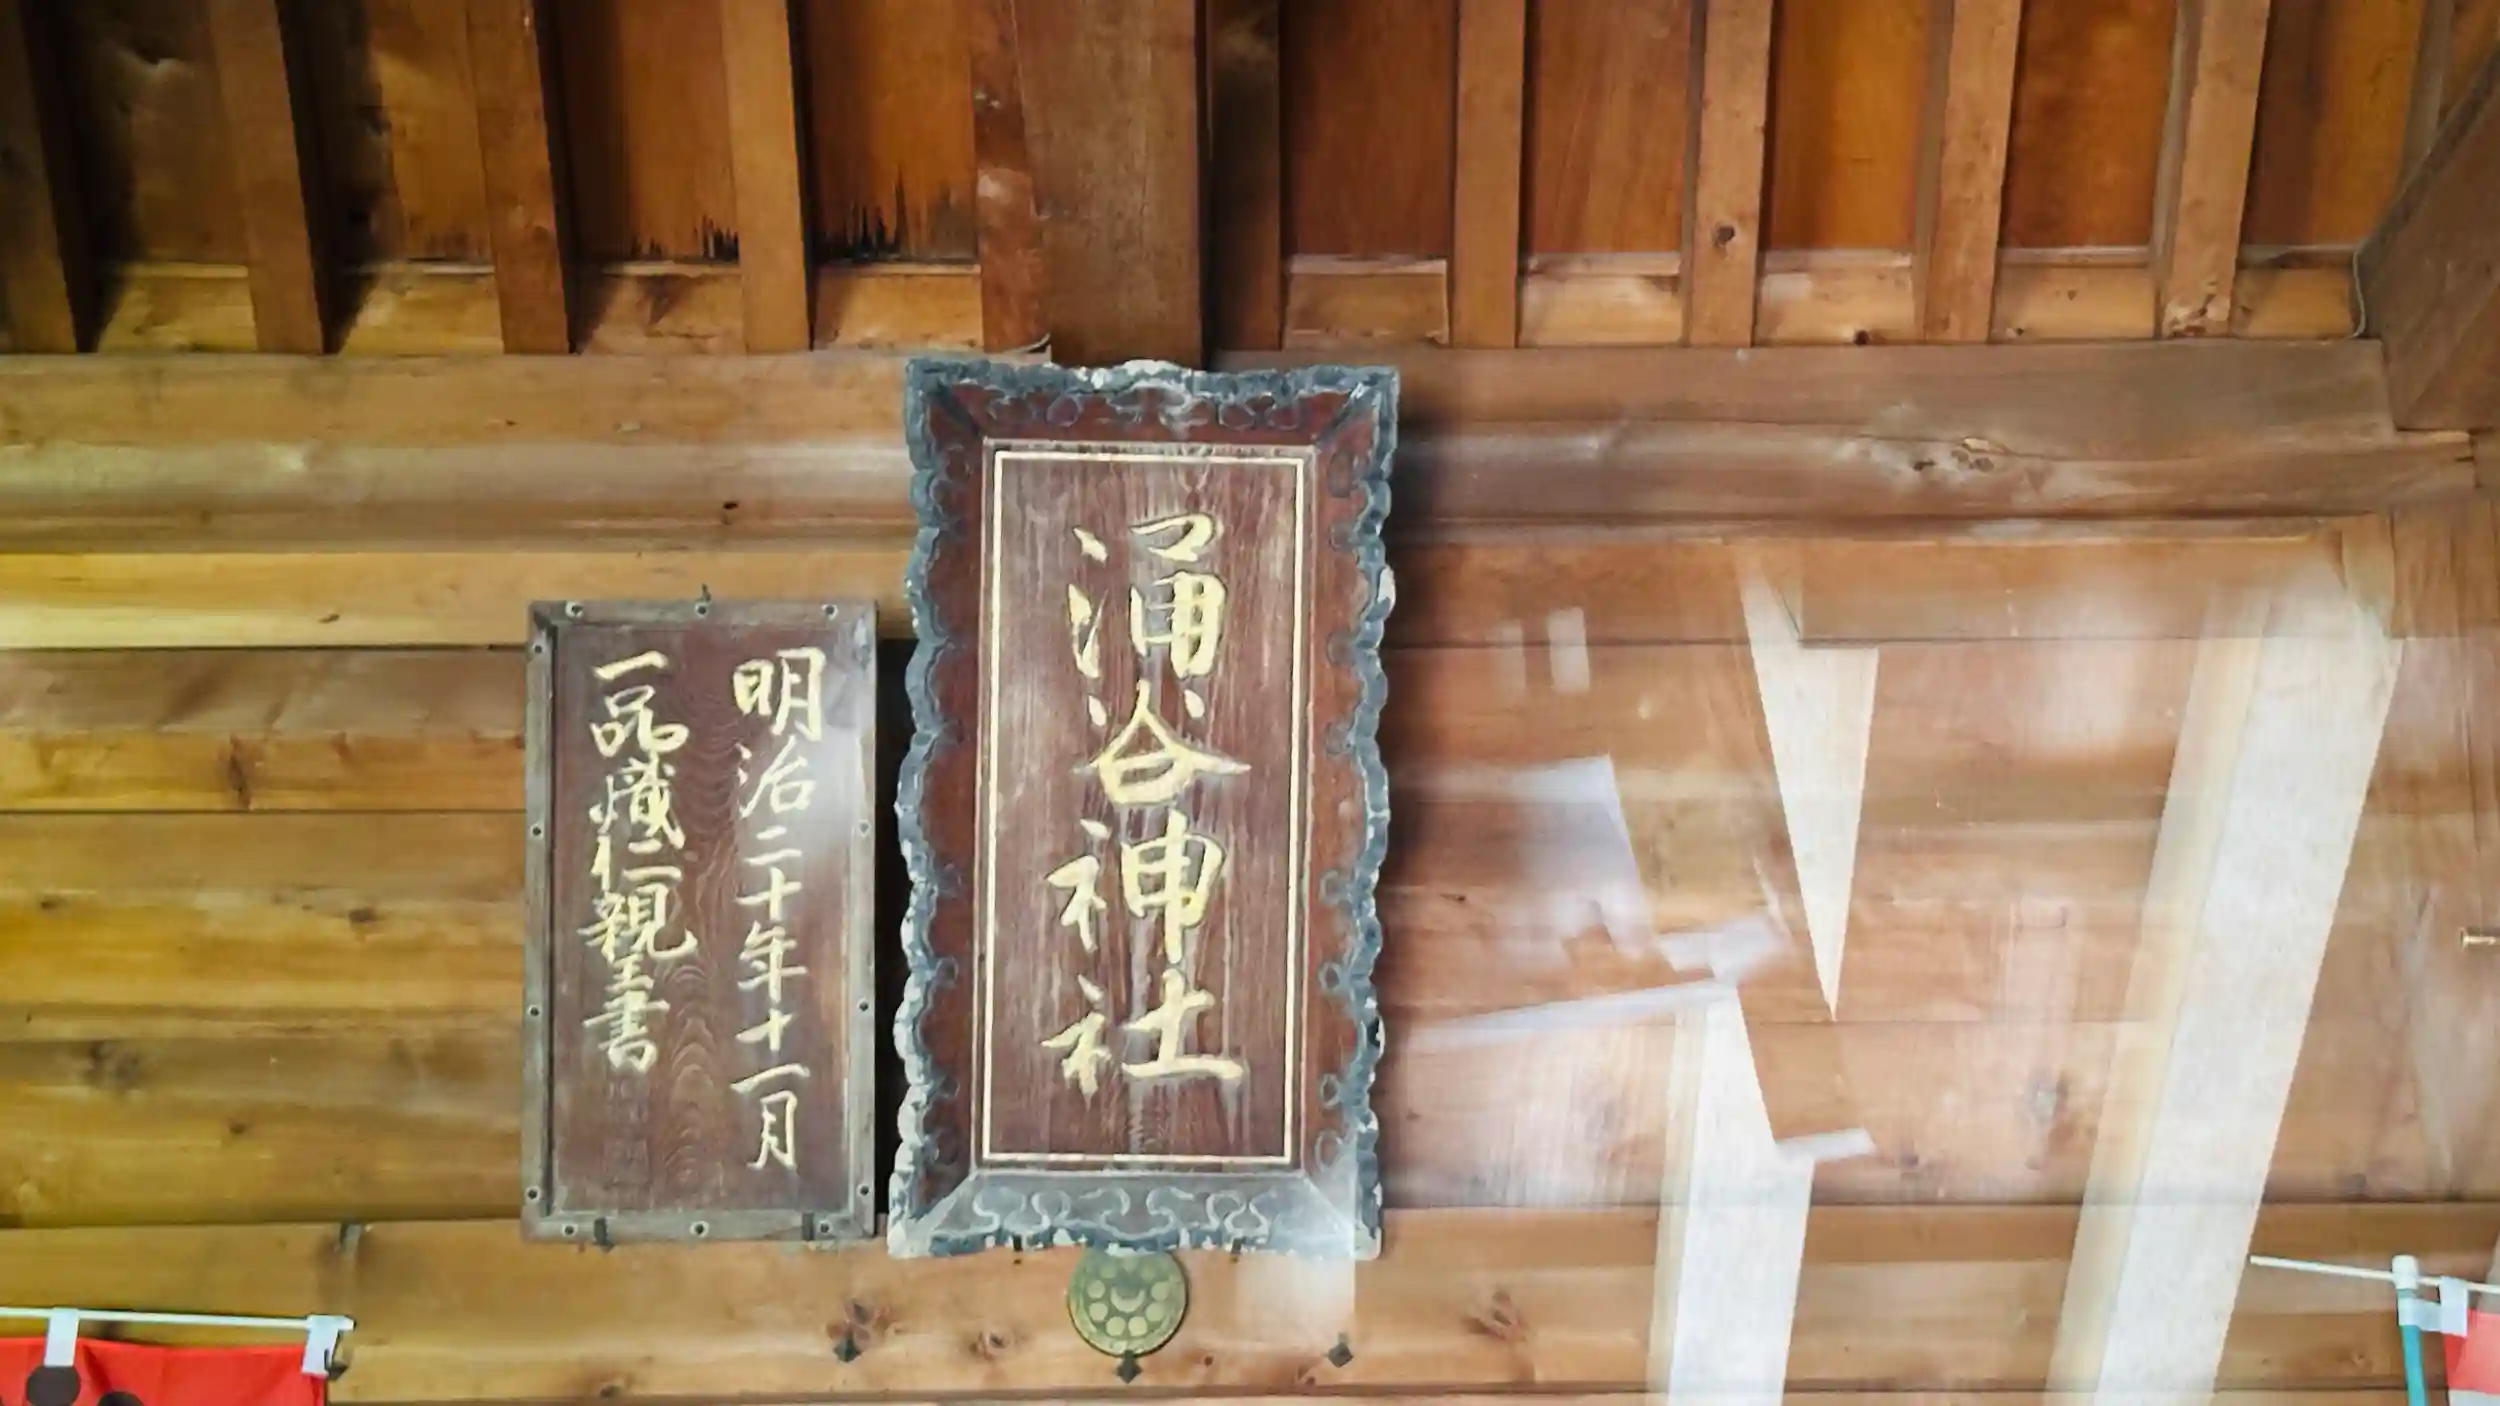 涌谷神社
明治二十年十一月
一品熾仁親王書